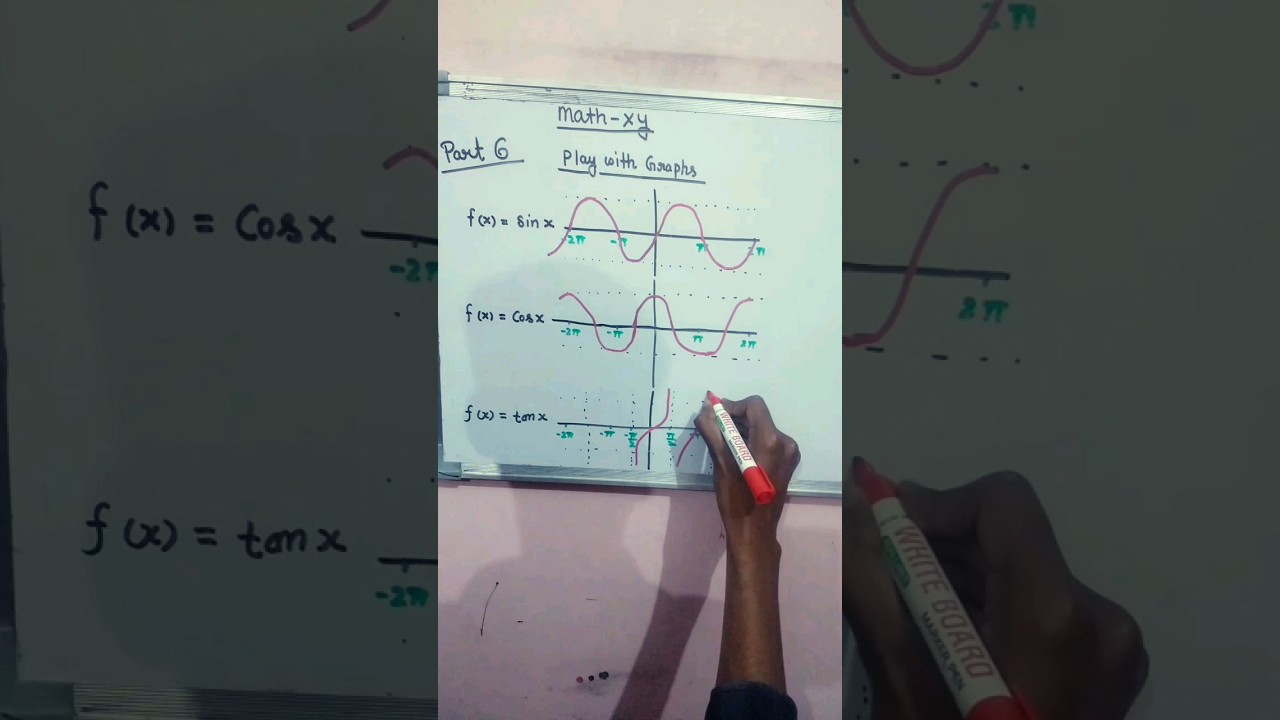 Math-xy
Part 6
Play with Graphs
f(x) = Sin x
-2π -π π 2π
f(x) = Cosx
-2π -π π 2π
f(x) = tanx
-2π -π -π/2 π/2
WHITE BOARD
2π
f(x) = Cosx
-2π
2π
f(x) = tanx
-2π
WHITE BOARD
MARKER PEN